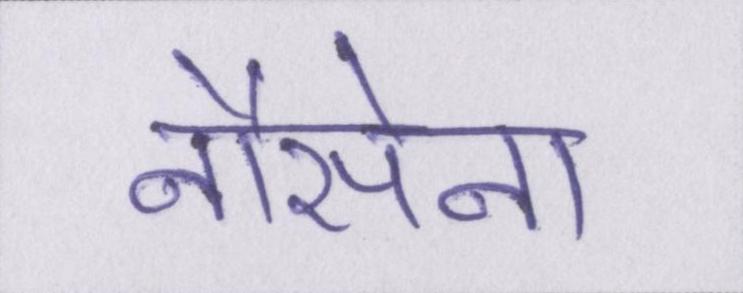 नौसेना